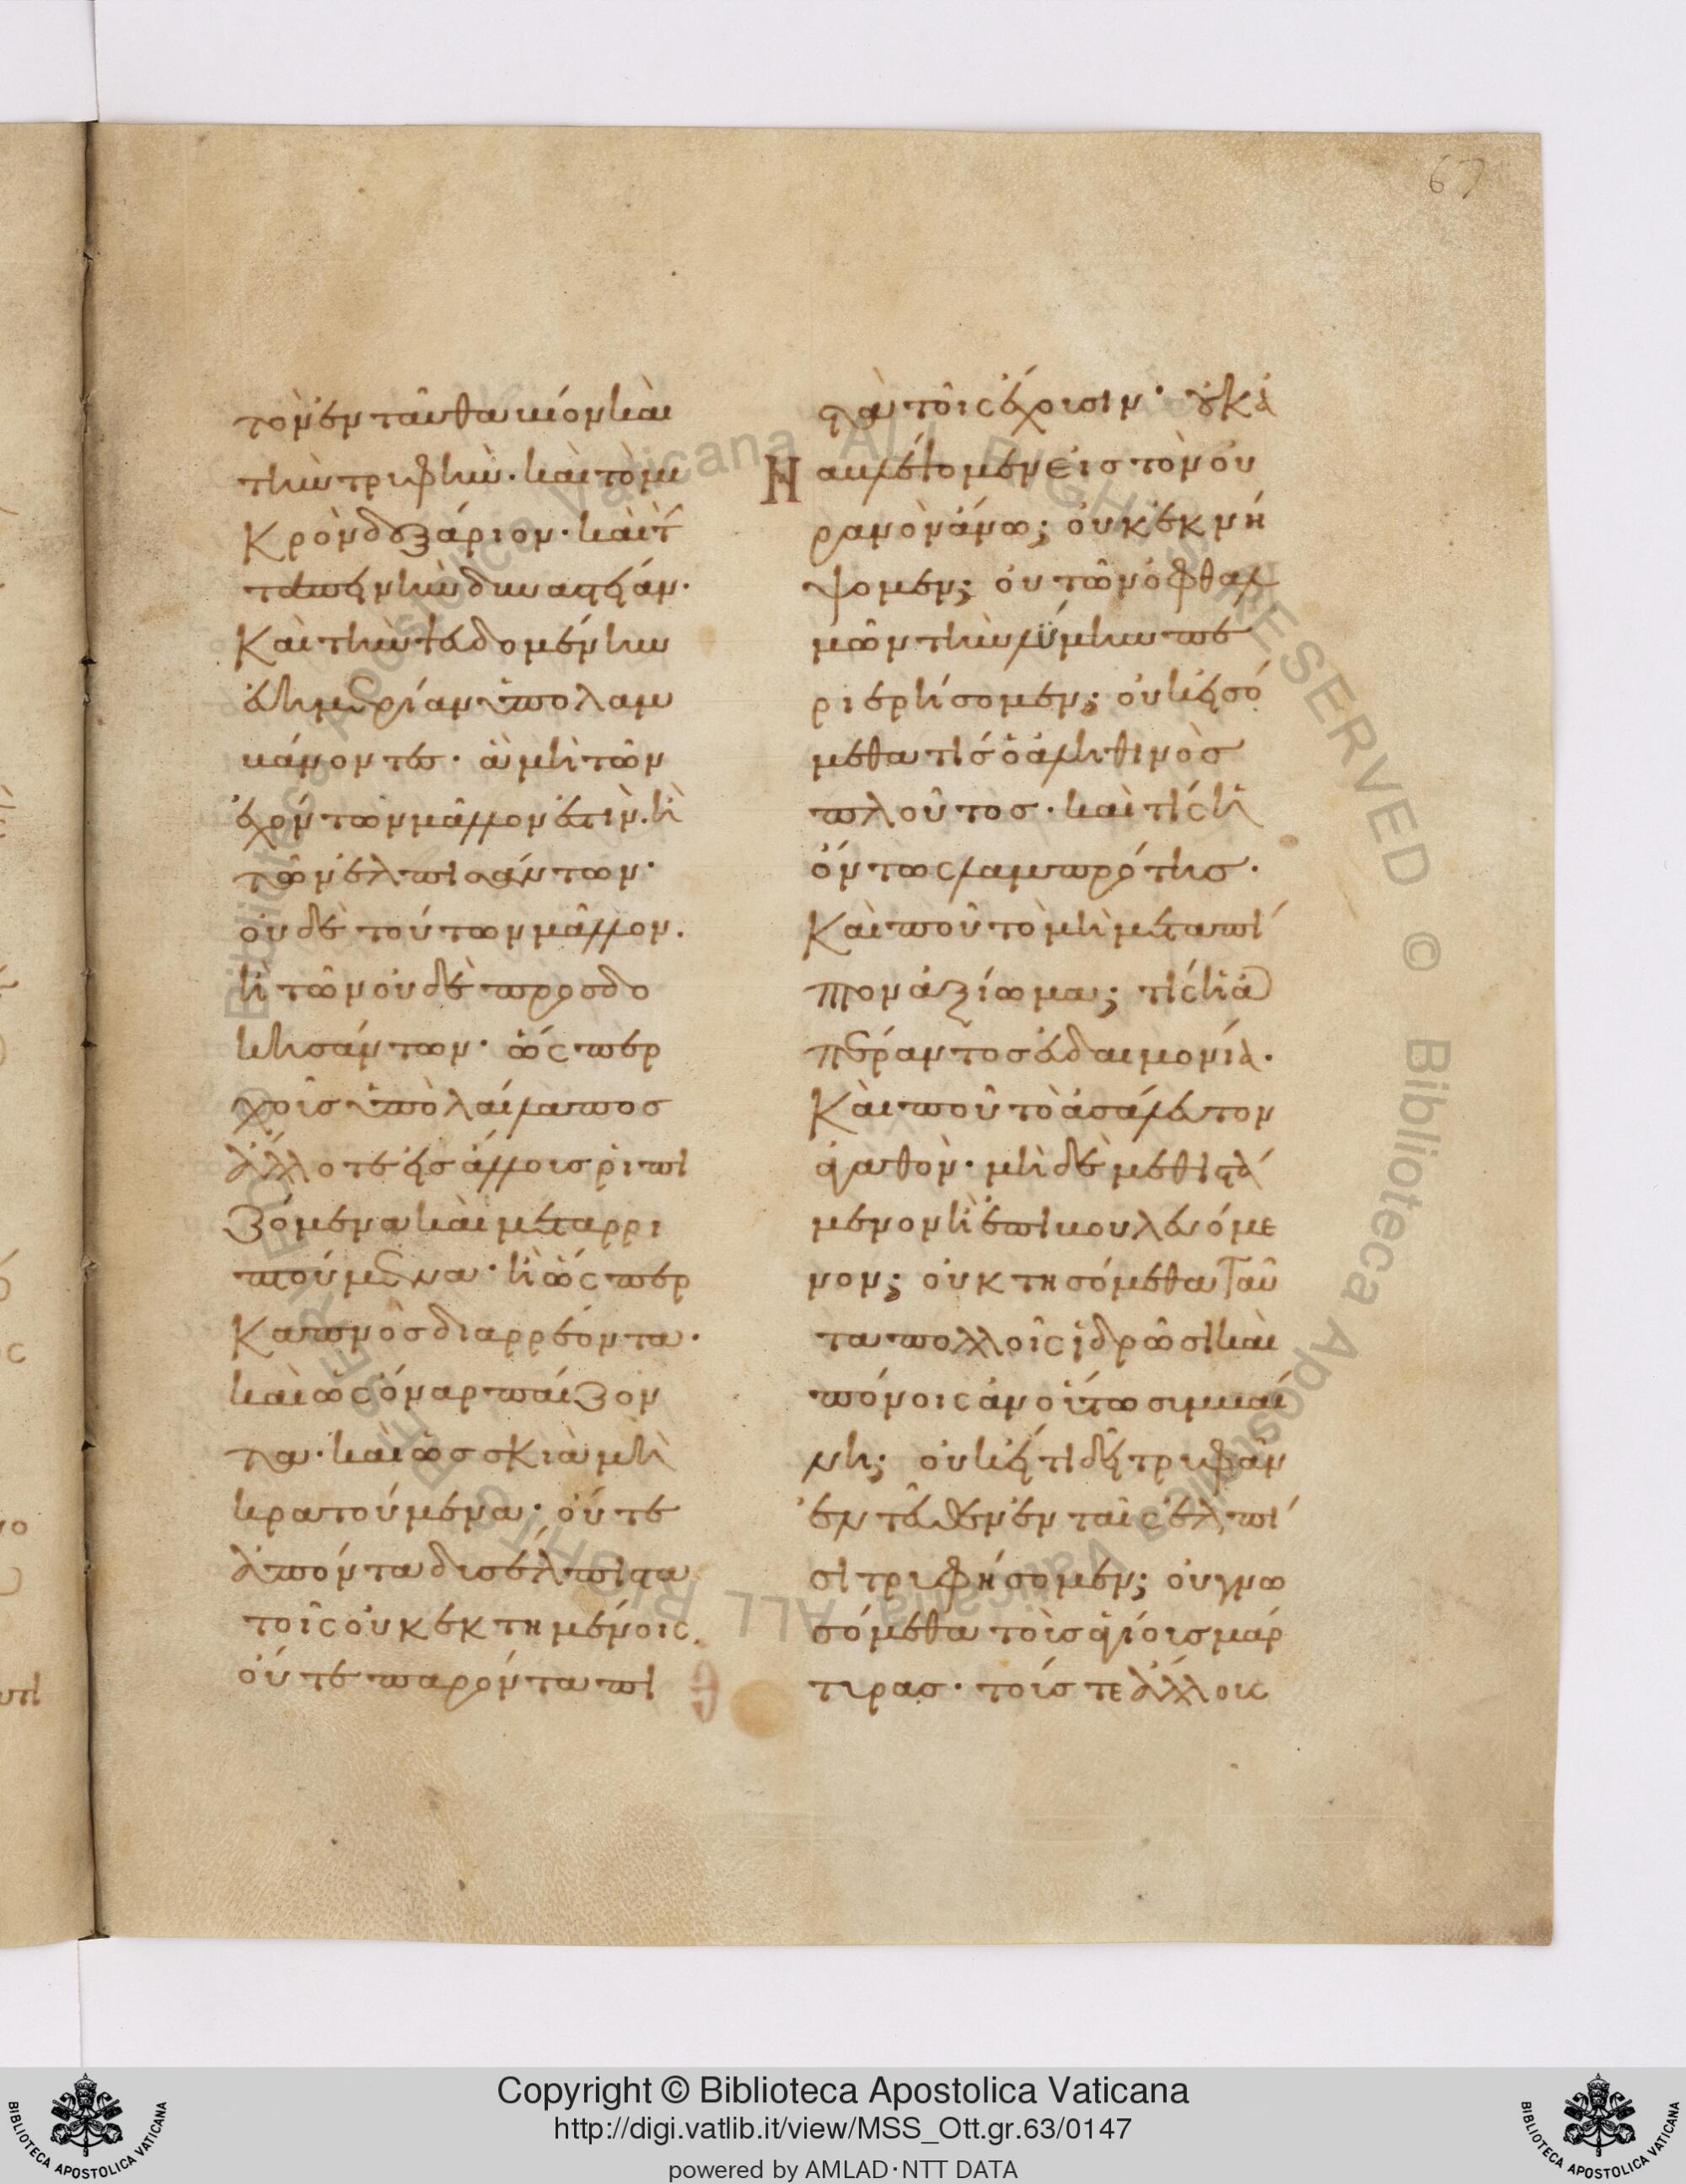 τὸν ἐνταῦθα βίον καὶ
τὴν τρυφὴν· καὶ τὸ μι
κρὸν δοξάριον· καὶ τ´
ταπεινὴν δυναστείαν·
Καὶ τὴν ψευδομένην
εὐημερίαν ὑπολαμ
βάνοντες· ἃ μὴ τῶν
ἐχόντων μᾶλλον ἐστὶν· ἢ
τῶν ἐλπισάντων·
οὐδὲ τούτων μᾶλλον·
ἢ τῶν οὐδὲ προσδο
κησάντων· ὥσπερ
χοῦς ὑπὸ λαίλαπος
ἄλλοτε εἰς ἄλλους ῥιπι
ζόμενα καὶ μεταρρι
πτούμενα· ἢ ὥσπερ
Καπνὸς διαρρέοντα·
καὶ ὡς ὄναρ παίζον
τα· καὶ ὡς σκιὰ μὴ
κρατούμενα· οὔτε
ἀπόντα δυσέλπιστα
τοῖς οὐ κεκτημένοις·
οὔτε παρόντα πι
στὰ τοῖς ἔχουσιν· οὐκ ἀ
Ναβλέψομεν εἰς τὸν οὐ
ρανὸν ἄνω; οὐκ ἐκνή
ψομεν; οὐ τῶν ὀφθαλ
μῶν τὴν λήμην πε
ριερήσομεν; οὐκ εἰσό
μεθα τίς ὁ ἀληθινὸς
πλοῦτος· καὶ τίς ἡ
ὄντως λαμπρότης·
Καὶ ποῦ τὸ μὴ μεταπί
πτον ἀξίωμα; τίς ἡ ἀ
πέραντος εὐδαιμονία·
Καὶ ποῦ τὸ ἀσάλευτον
ἀγαθὸν· μὴ δὲ μεθιστά
μενον ἢ ἐπιβουλευόμε
νον; οὐ κτησόμεθα ταῦ
τα πολλοῖς ἱδρῶσι καὶ
πόνοις ἂν οὕτω συμβαί
νῃ; οὐκ εἴ τι δεῖ τρυφᾶν
ἐνταῦθα ἐν ταῖς ἐλπί
σι τρυφήσομεν; οὐ γνω
σόμεθα τοὺς ἁγίους μάρ
τυρας· τούς τε ἄλλους
67
Copyright © Biblioteca Apostolica Vaticana
http://digi.vatlib.it/view/MSS_Ott.gr.63/0147
powered by AMLAD·NTT DATA
BIBLIOTECA APOSTOLICA VATICANA
BIBLIOTECA APOSTOLICA VATICANA